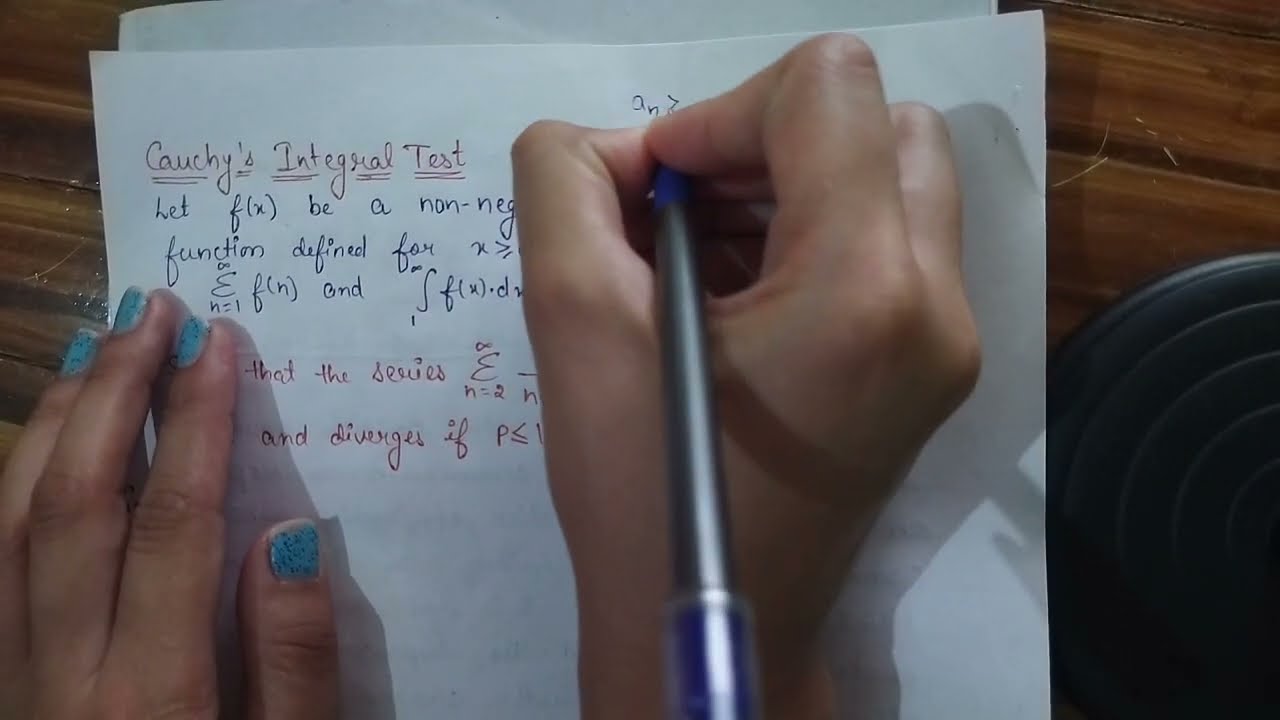 aₙ ≥
Cauchy's Integral Test
Let f(x) be a non-neg
function defined for x ≥
∞ ∑ n=1 f(n) and ∞ ∫ 1 f(x).dx
that the series ∞ ∑ n=2 — n
and diverges if P ≤ 1